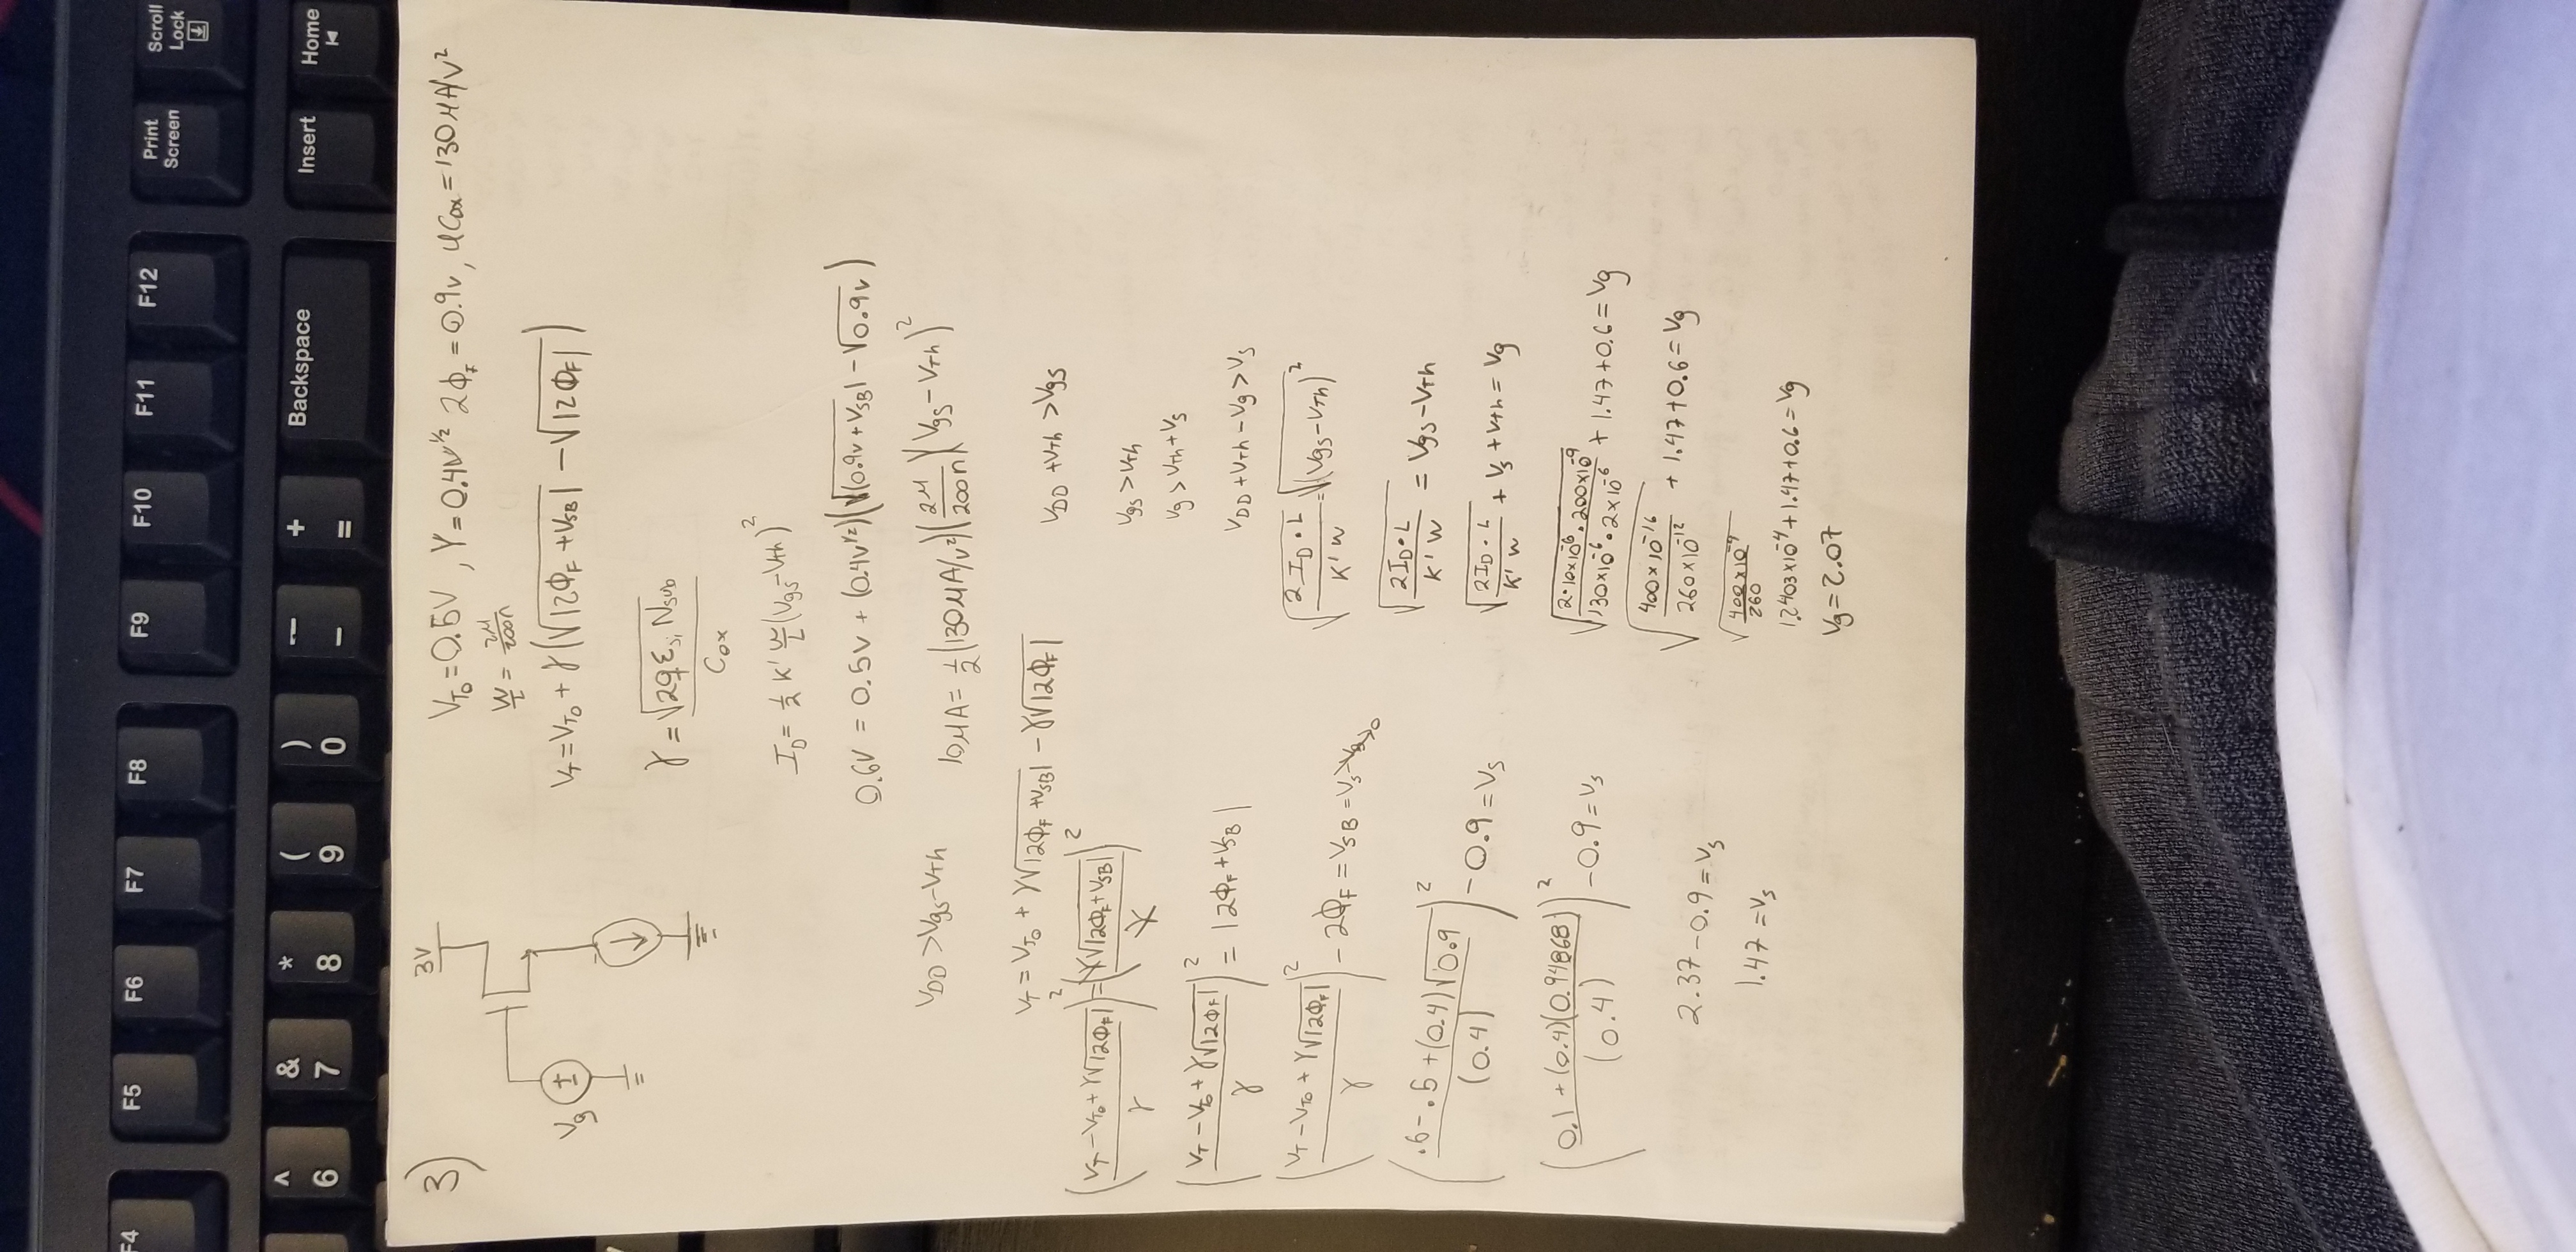 F4 F5 F6 F7 F8 F9 F10 F11 F12 Print Screen Scroll Lock
^ & * ( ) — +
6 7 8 9 0 - = Backspace Insert Home
3)
3V
Vg
V_T0 = 0.5V , γ = 0.4V^1/2 2Φ_F = 0.9v, μCox = 130 μA/V²
W/L = 2μ/200n
V_T = V_T0 + γ(√|2Φ_F + V_SB| - √|2Φ_F|)
γ = √(2qε_si N_sub) / Cox
I_D = 1/2 K' W/L (Vgs - Vth)²
0.6V = 0.5V + (0.4V^1/2)(√|0.9v + V_SB| - √0.9v)
V_DD > Vgs - Vth
10μA = 1/2 (130μA/v²)(2μ/200n)(Vgs - Vth)²
V_T = V_T0 + γ√|2Φ_F + V_SB| - γ√|2Φ_F|
((V_T - V_T0 + γ√|2Φ_F|)/γ)² = (γ√|2Φ_F + V_SB|/γ)²
((V_T - V_T0 + γ√|2Φ_F|)/γ)² = |2Φ_F + V_SB|
((V_T - V_T0 + γ√|2Φ_F|)/γ)² - 2Φ_F = V_SB = V_S - V_B 0
((.6 - .5 + (0.4)√0.9)/(0.4))² - 0.9 = V_S
((0.1 + (0.4)(0.94868))/(0.4))² - 0.9 = V_S
2.37 - 0.9 = V_S
1.47 = V_S
V_DD + Vth > Vgs
Vgs > Vth
Vg > Vth + V_S
V_DD + Vth - Vg > V_S
√(2I_D · L / K' W) = √(Vgs - Vth)²
√(2I_D · L / K' W) = Vgs - Vth
√(2I_D · L / K' W) + V_S + Vth = Vg
√(2·10x10^-6 · 200x10^-9 / 130x10^-6 · 2x10^-6) + 1.47 + 0.6 = Vg
√(400x10^-16 / 260x10^-12) + 1.47 + 0.6 = Vg
√(400x10^-4 / 260)
1.2403x10^-4 + 1.47 + 0.6 = Vg
Vg = 2.07